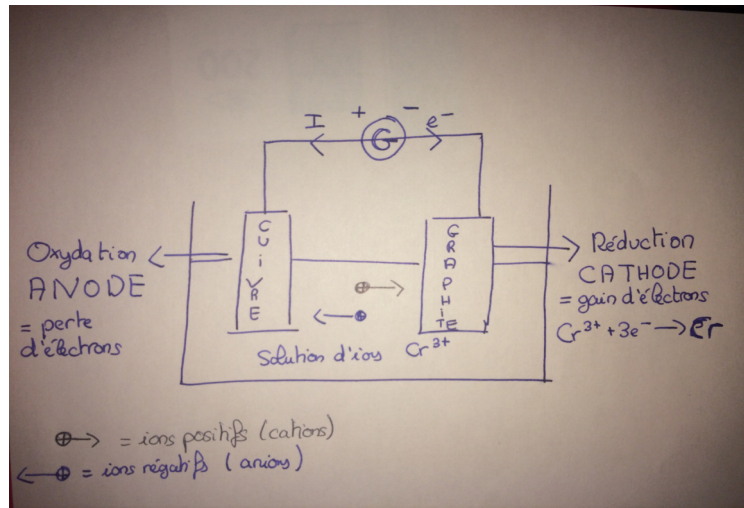 I + - e-
G
CUiVRE
GRAPHiTE
Oxydation
ANODE
= perte
d'électrons
Réduction
CATHODE
= gain d'électrons
Cr³⁺ + 3e⁻ → Cr
Solution d'ions Cr³⁺
⊕→ = ions positifs (cations)
←⊕ = ions négatifs (anions)